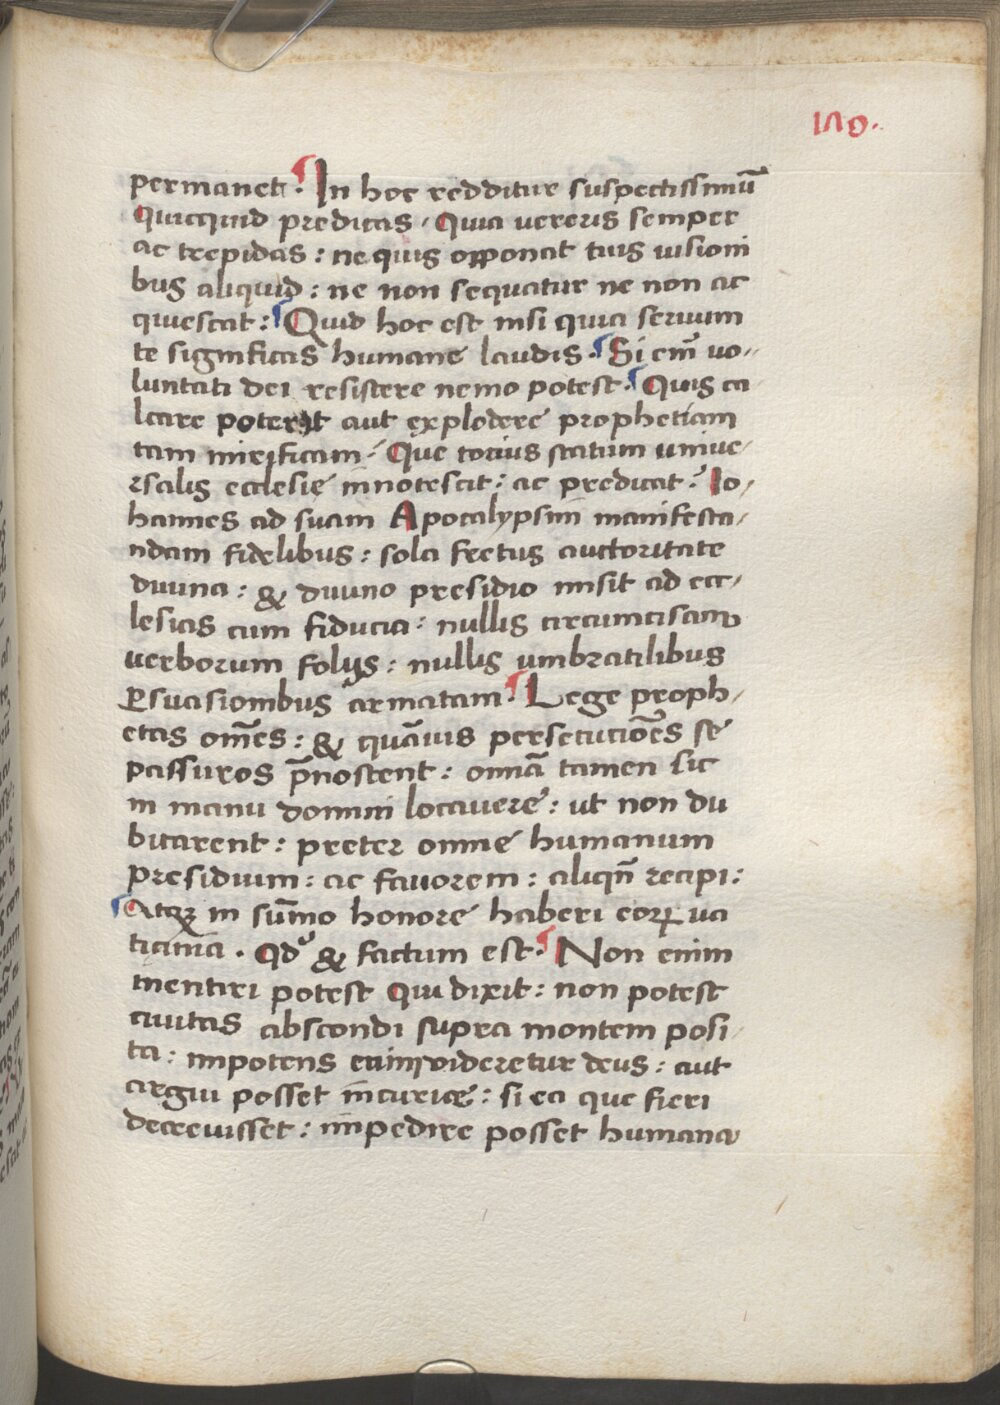 170.
permanet. In hoc redditur suspectissimū
quicquid predicas. Quia vereris semper
ac trepidas: ne quis opponat tuis uisioni
bus aliquid: ne non sequatur ne non ac
quiescat: Quid hoc est nisi quia seruum
te significas humane laudis. Si em̄ uo-
luntati dei resistere nemo potest. Quis ca
lcare poterit aut explodere prophetiam
tam mirificam. Que totius statum uniue-
rsalis ecclesie innotescit: ac predicat. Io-
hannes ad suam Apocalypsim manifesta-
ndam fidelibus: sola fretus auctoritate
diuina: & diuino presidio misit ad ecc-
lesias cum fiducia: nullis circumcisam
uerborum folijs: nullis umbratilibus
ꝑsuasionibus armatam. Lege proph-
etas om̄es: & quāuis persecutiōes se
passuros p̄noscent: omnā tamen sic
in manu domini locauere: ut non du
bitarent: preter omne humanum
presidium: ac fauorem: aliqn̄ recipi:
Atqꝫ in sum̄o honore haberi eoꝝ ua
ticinia. Qđ & factum est. Non enim
mentiri potest qui dixit: non potest
ciuitas abscondi supra montem posi-
ta: impotens enim videretur deus: aut
argui posset incurie: si ea que fieri
decreuisset: impedire posset humana